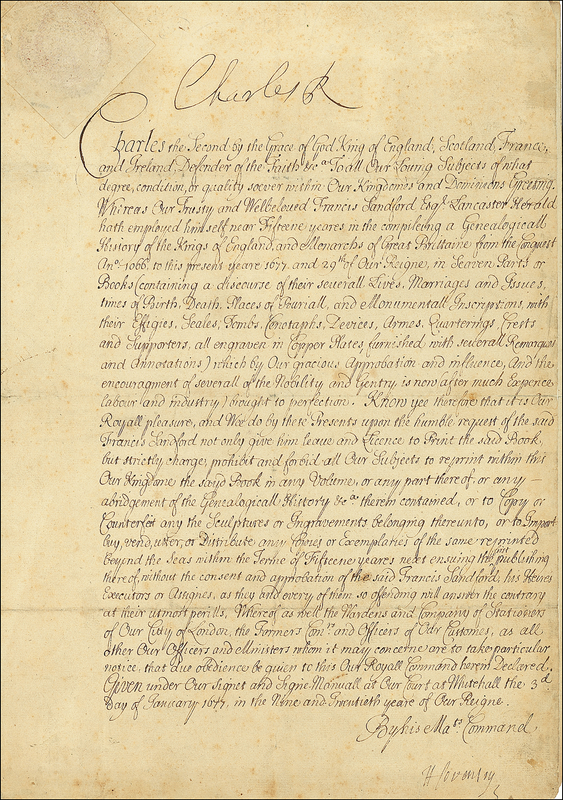 Charles R
Charles the Second by the Grace of God King of England, Scotland, France,
and Ireland, Defender of the Faith &c.a To all Our Louing Subjects of what
degree, condition, or quality soever within Our Kingdomes and Dominions Greeting.
Whereas Our Trusty and Welbeloved Francis Sandford Esq.r Lancaster Herald
hath employed himself near Fifteene yeares in the compileing a Genealogicall
History of the Kings of England, and Monarchs of Great Brittaine from the Conquest
An.o 1066. to this present yeare 1677. and 29th of Our Reigne, in Seaven Parts or
Books (containing a discourse of their severall Lives, Marriages and Issues,
times of Birth, Death, Places of Bouriall, and Monumentall Inscriptions, with
their Effigies, Seales, Tombs, Cenotaphs, Devices, Armes, Quarterings, Crests
and Supporters, all engraven in Copper Plates, furnished with severall Remarques
and Annotations) which by Our gracious Approbation and influence, And the
encouragment of severall of the Nobility and Gentry is now (after much Expence
labour and industry) brought to perfection. Know yee therefore that it is Our
Royall pleasure, and We do by these Presents upon the humble request of the said
Francis Sandford not only give him leave and Licence to Print the said Book,
but strictly charge, prohibit and forbid all Our Subjects to reprint within this
Our Kingdome the sayd Book in any Volume, or any part thereof, or any
abridgement of the Genealogicall History &c.a therein contained, or to Copy or
Counterfet any the Sculptures or Ingravements belonging thereunto, or to Import
buy, vend, utter, or Distribute any Copies or Exemplaries of the same reprinted
beyond the Seas within the Terme of Fifteene yeares next ensuing the first publishing
thereof, without the consent and approbation of the said Francis Sandford, his Heires
Executors or Assignes, as they and every of them so offending will answer the contrary
at their utmost perills, Whereof as well the Wardens and Company of Stationers
of Our City of London, the Farmers Com.rs and Officers of Our Customes, as all
other Our Officers and Ministers whom it may concerne are to take particular
notice, that due obedience be giuen to this Our Royall Command herein Declared.
Given under Our Signet and Signe Manuall at Our Court at Whitehall the 3.d
Day of January 1677. in the Nine and Twentieth yeare of Our Reigne.
By his Ma.ts Command
H Coventry